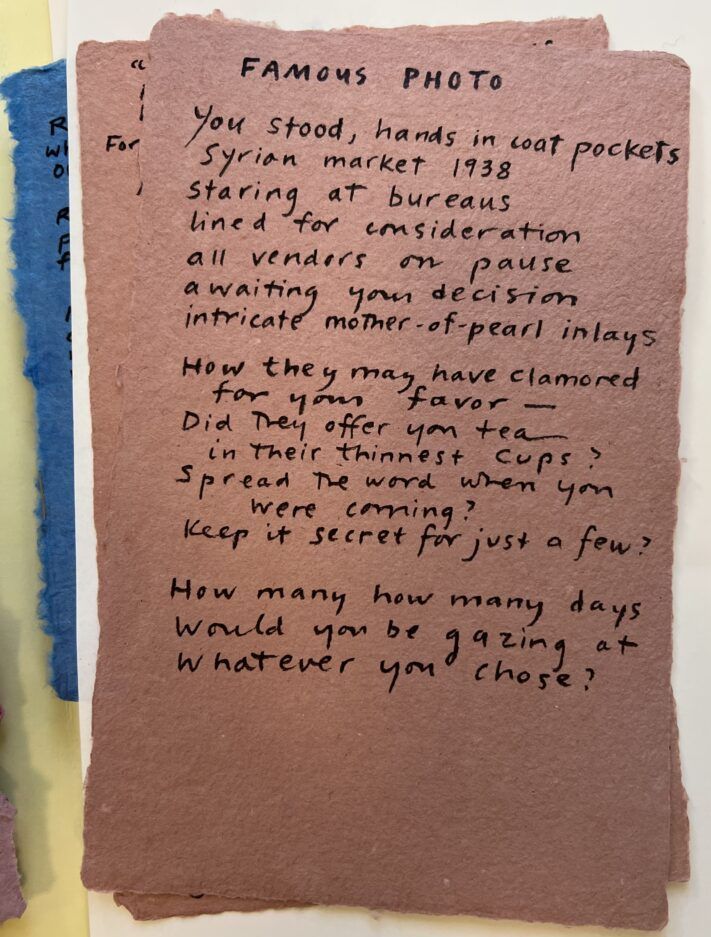 FAMOUS PHOTO
You stood, hands in coat pockets
Syrian market 1938
staring at bureaus
lined for consideration
all vendors on pause
awaiting your decision
intricate mother-of-pearl inlays
How they may have clamored
for your favor —
Did they offer you tea
in their thinnest cups?
Spread the word when you
were coming?
Keep it secret for just a few?
How many how many days
would you be gazing at
whatever you chose?
For